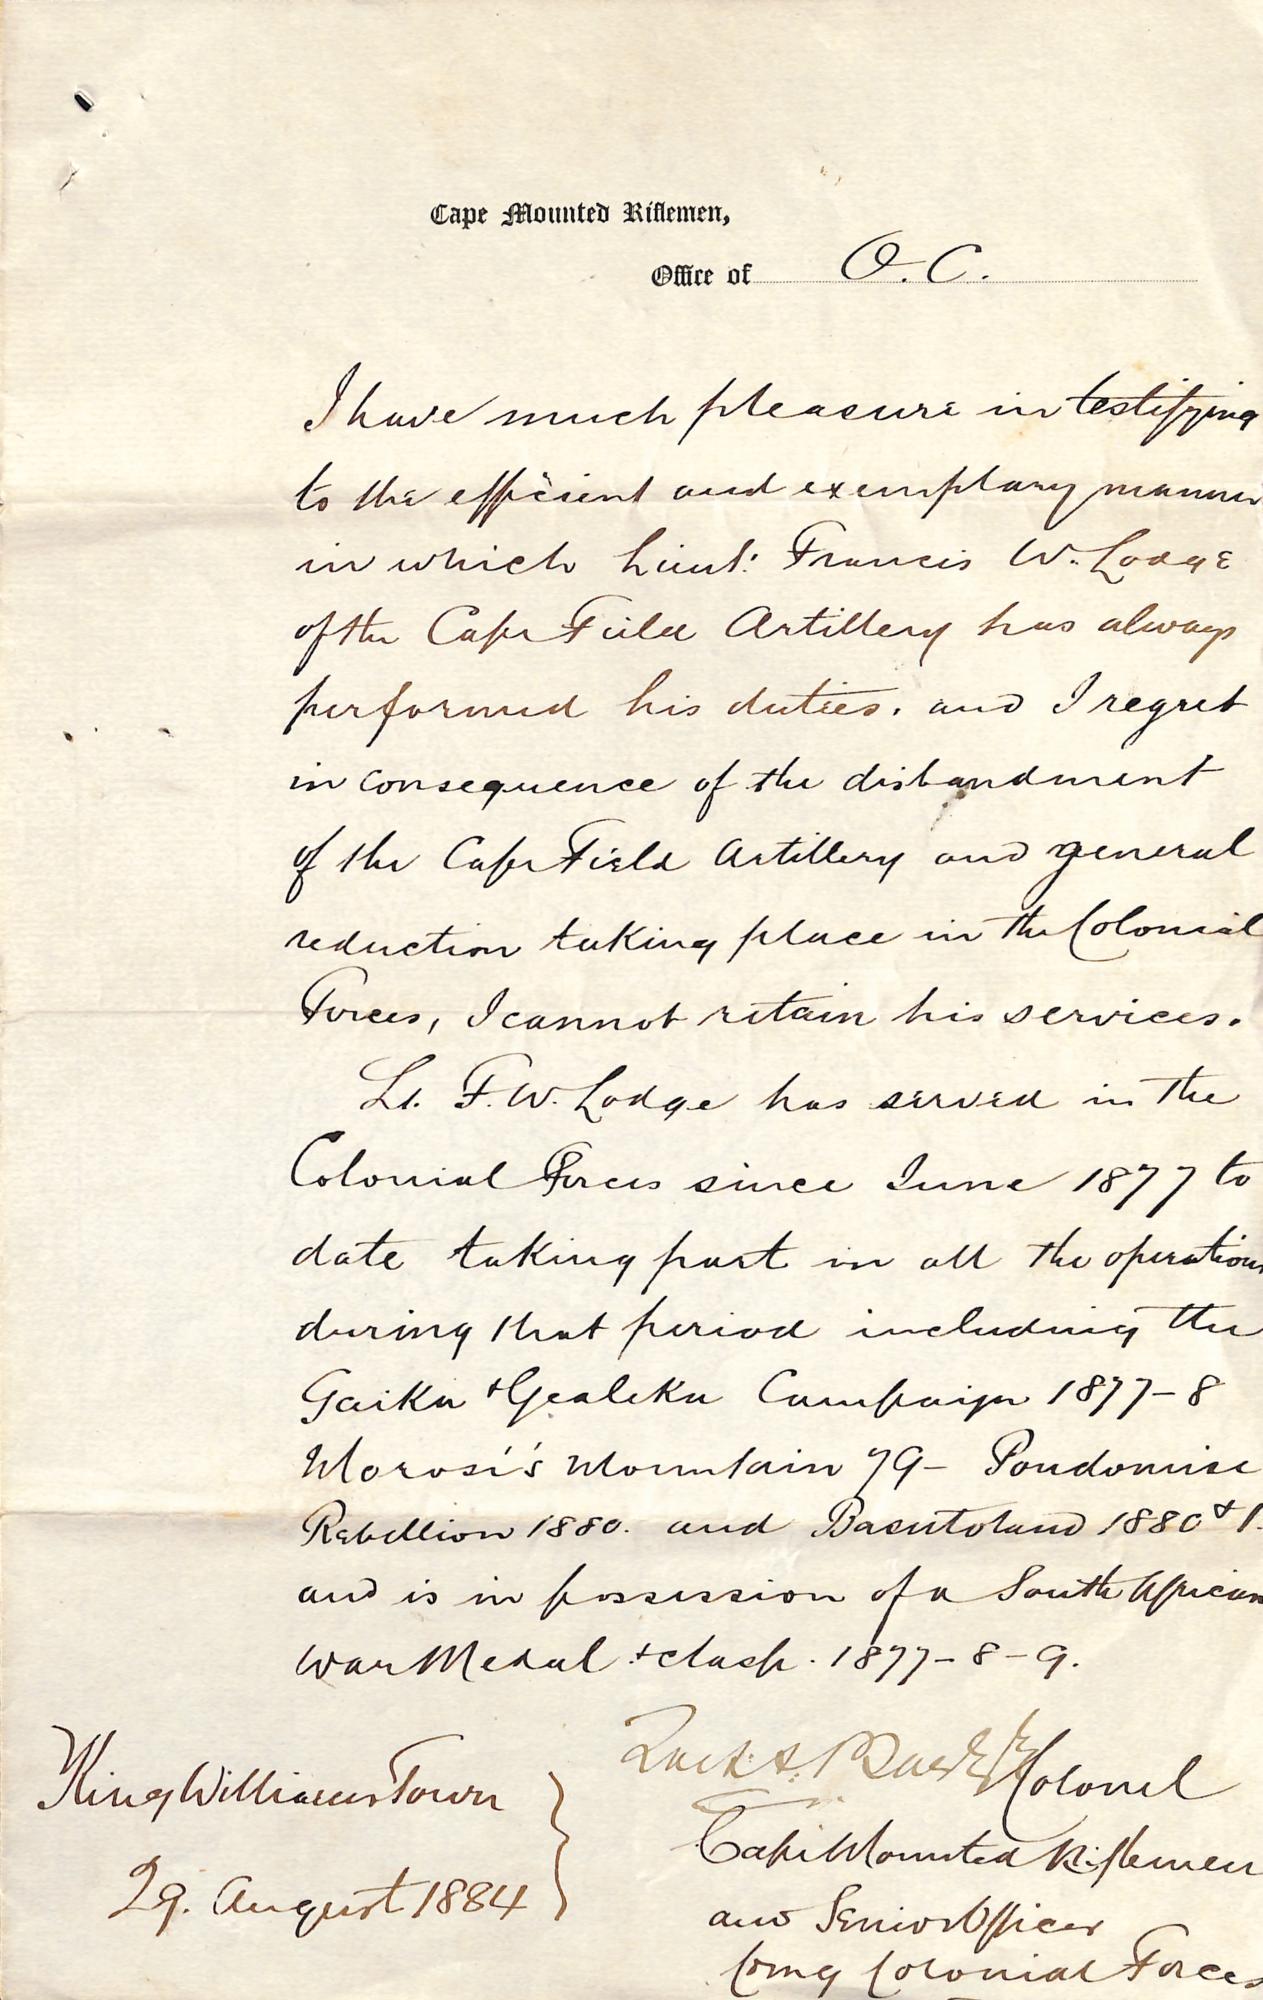 Cape Mounted Riflemen,
Office of O.C.
I have much pleasure in testifying
to the efficient and exemplary manner
in which Lieut: Francis W. Lodge
of the Cape Field Artillery has always
performed his duties. and I regret
in consequence of the disbandment
of the Cape Field Artillery and general
reduction taking place in the Colonial
Forces, I cannot retain his services.
Lt. F. W. Lodge has served in the
Colonial Forces since June 1877 to
date taking part in all the operations
during that period including the
Gaika & Gcaleka Campaign 1877-8
Morosi's Mountain 79 - Pondomise
Rebellion 1880. and Basutoland 1880 & 1.
and is in possession of a South African
War Medal & clasp. 1877-8-9.
Colonel
Cape Mounted Riflemen
and Senior Officer
Comg Colonial Forces
King Williams Town
29. August 1884